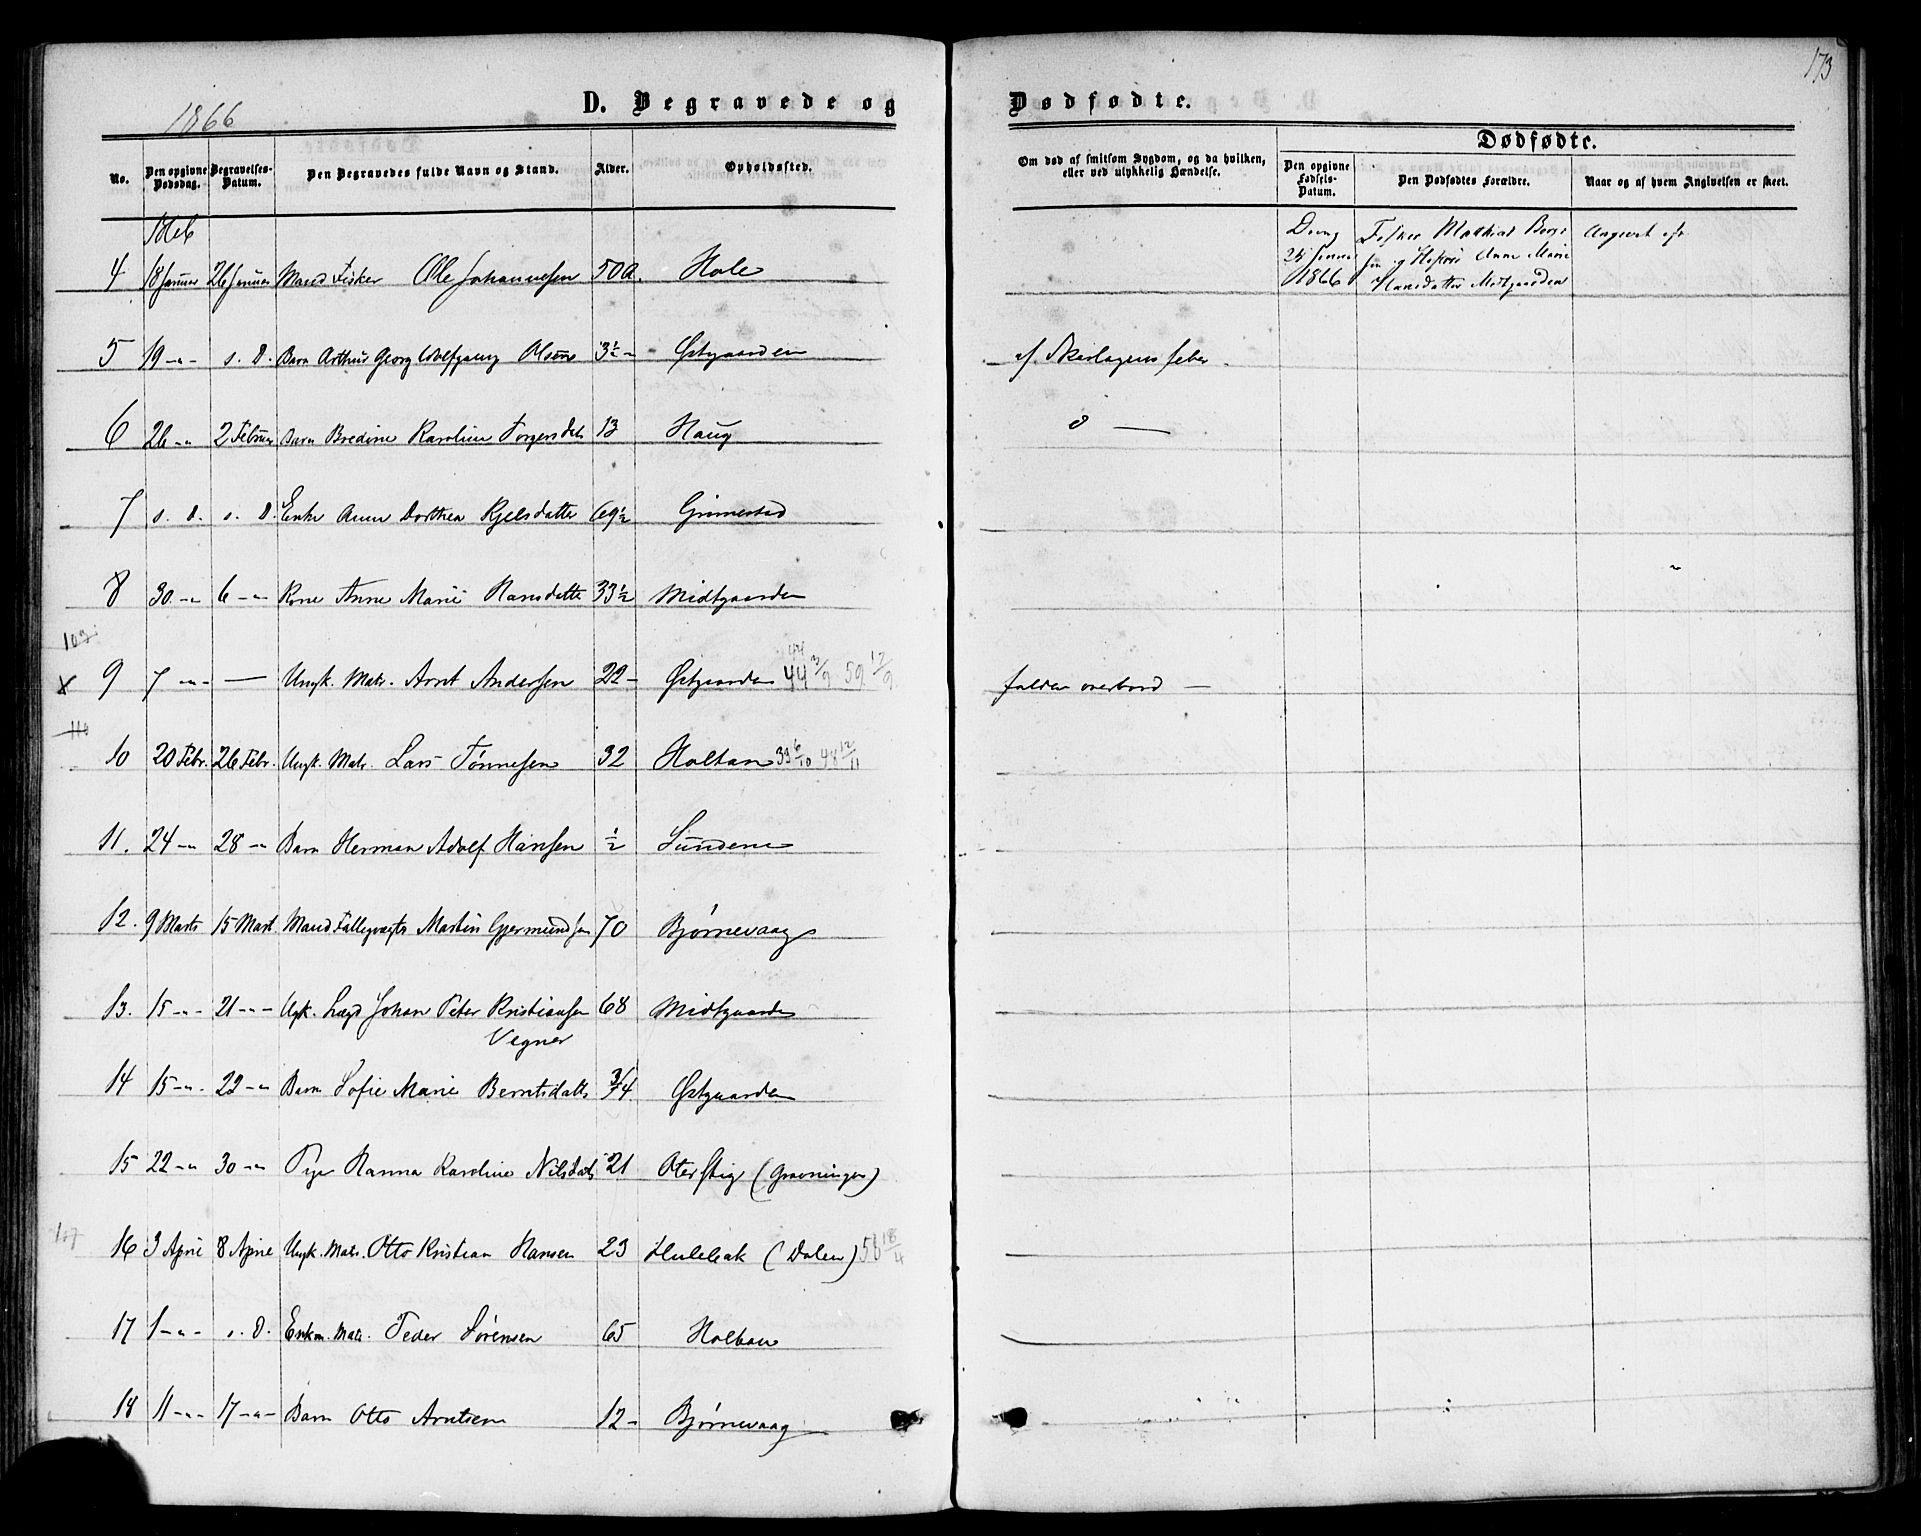 173
1866
D. Begravede og
Dødfødte.
No.
Den opgivne Dødsdag.
Begravelses-Datum.
Den Begravedes fulde Navn og Stand.
Alder.
Opholdssted.
Om død af smitsom Sygdom, og da hvilken, eller ved ulykkelig Hændelse.
Dødfødte.
Den opgivne Fødsels-Datum.
Den Dødfødtes Forældre.
Naar og af hvem Angivelsen er skeet.
4 18 Januar 26 Januar Mand Fisker Ole Johannesen 50 A. Hole
1866 Fisker Mathias
Anne Marie
Hansdatter Midtgaarden
5 19 -"- s. D. Barn Arthur Georg Wolfgang Olsen 3½ - Østgaarden af Skarlagensfeber
6 26 -"- 2 Februar Barn Bredine Karoline Torgersdat 13 Haug
7 s. D. s. D. Enke Anne Dorthea Kjelsdatter 69½ Grimestad
8 30 -"- 6 -"- Kone Anne Marie Hansdatter 33½ Midtgaarden
103
x 9 7 -"- — Ungk. Matr. Arnt Andersen 22 - Østgaarden 44 3/9 59 12/9 falden overbord —
110
10 20 Febr. 26 Febr. Ungk. Matr. Lars Tønnesen 32 Holtan 33 6/10 48 12/11
11. 24 -"- 28 -"- Barn Herman Adolf Hansen ½ Sundene
12. 9 Marts 15 Mart Mand Martin Gjermundsen 70 Bjørnevaag
13. 15 -"- 21 -"- Ugk. Lægd Johan Peter Kristiansen 68 Midtgaarden
Vegner
14 15 -"- 22 -"- Barn Sofie Marie Berntsdatt 3/4 Østgaarden
15 22 -"- 30 -"- Pige Hanna Karoline Nilsdat 21 Oterstig (Grøvningen)
107
16 3 April 8 April Ungk. Matr. Otto Kristian Hansen 23 Hulebak (Dalen) 58 18/4
17 1 -"- s. D. Enkm. Matr. Peder Sørensen 65 Holtan
18 11 -"- 17 -"- Barn Otto Arntsen 12 - Bjørnevaag